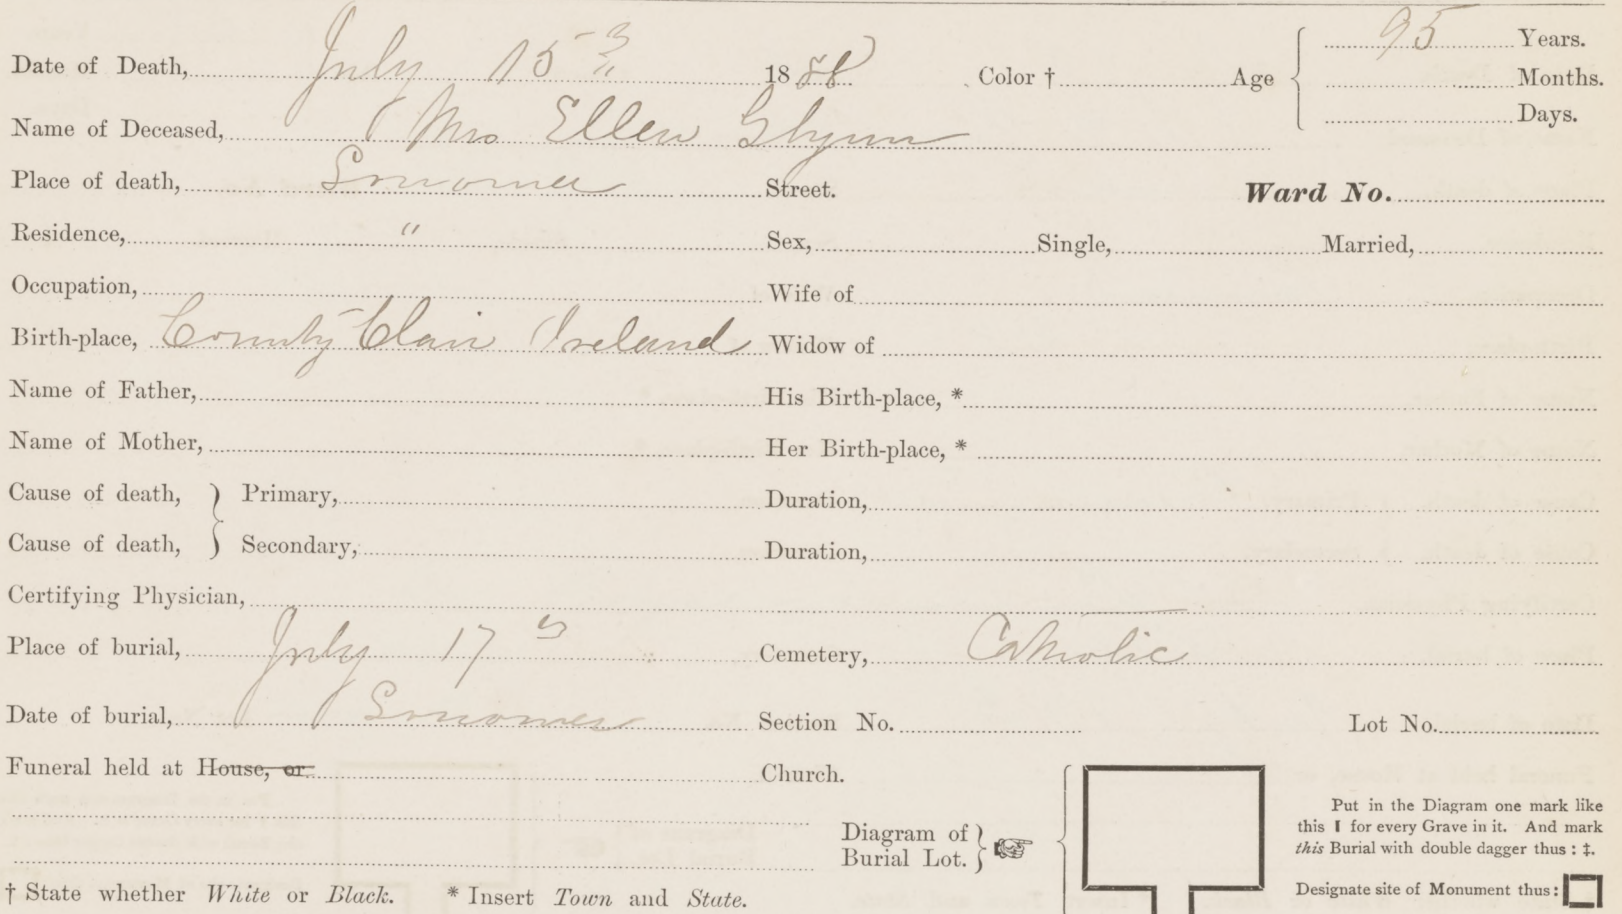 Date of Death, July 15th 1888 Color † Age 95 Years.
Months.
Days.
Name of Deceased, Mrs Ellen Glynn
Place of death, Sonoma Street. Ward No.
Residence, " Sex, Single, Married,
Occupation, Wife of
Birth-place, County Clair Ireland Widow of
Name of Father, His Birth-place, *
Name of Mother, Her Birth-place, *
Cause of death, } Primary, Duration,
Cause of death, } Secondary, Duration,
Certifying Physician,
Place of burial, July 17th Cemetery, Catholic
Date of burial, Sonoma Section No. Lot No.
Funeral held at House, or Church.
Diagram of Burial Lot. }
Put in the Diagram one mark like
this I for every Grave in it. And mark
this Burial with double dagger thus : ‡.
Designate site of Monument thus :
† State whether White or Black. * Insert Town and State.